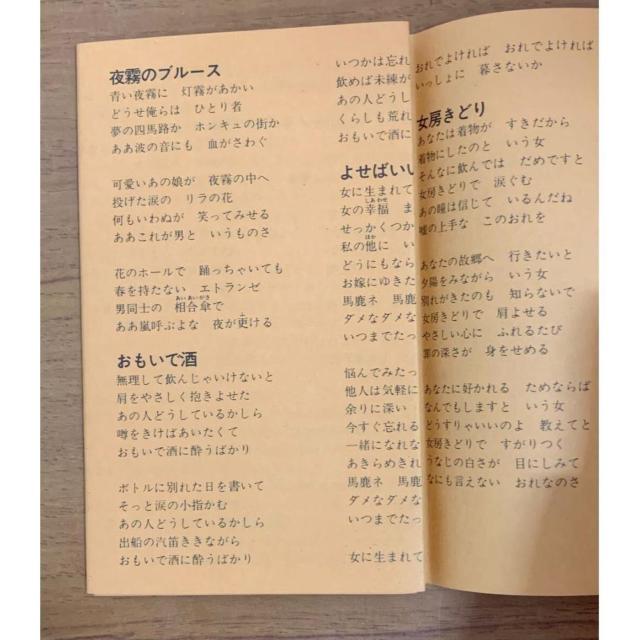 夜霧のブルース
青い夜霧に 灯霧があかい
どうせ俺らは ひとり者
夢の四馬路か ホンキュの街か
ああ波の音にも 血がさわぐ
可愛いあの娘が 夜霧の中へ
投げた涙の リラの花
何もいわぬが 笑ってみせる
ああこれが男と いうものさ
花のホールで 踊っちゃいても
春を持たない エトランゼ
男同士の 相合傘で
あいあいがさ
ああ嵐呼ぶよな 夜が更ける
ふ
おもいで酒
無理して飲んじゃいけないと
肩をやさしく抱きよせた
あの人どうしているかしら
噂をきけばあいたくて
おもいで酒に酔うばかり
ボトルに別れた日を書いて
そっと涙の小指かむ
あの人どうしているかしら
出船の汽笛ききながら
おもいで酒に酔うばかり
いつかは忘れ
飲めば未練が
あの人どうし
くらしも荒れ
おもいで酒に
よせばいい
女に生まれて
女の幸福 ま
しあわせ
せっかくつか
私の他に い
ほか
どうにもなら
お嫁にゆきた
馬鹿ネ 馬鹿
ダメなダメな
いつまでたっ
悩んでみたっ
他人は気軽に
余りに深い
今すぐ忘れる
一緒になれな
あきらめきれ
馬鹿ネ 馬鹿
ダメなダメな
いつまでたっ
女に生まれて
おれでよければ おれでよければ
いっしょに 暮さないか
女房きどり
あなたは着物が すきだから
着物にしたのと いう女
そんなに飲んでは だめですと
女房きどりで 涙ぐむ
あの瞳は信じて いるんだね
嘘の上手な このおれを
あなたの故郷へ 行きたいと
夕陽をみながら いう女
別れがきたのも 知らないで
女房きどりで 肩よせる
やさしい心に ふれるたび
罪の深さが 身をせめる
あなたに好かれる ためならば
なんでもしますと いう女
どうすりゃいいのよ 教えてと
女房きどりで すがりつく
うなじの白さが 目にしみて
なにも言えない おれなのさ